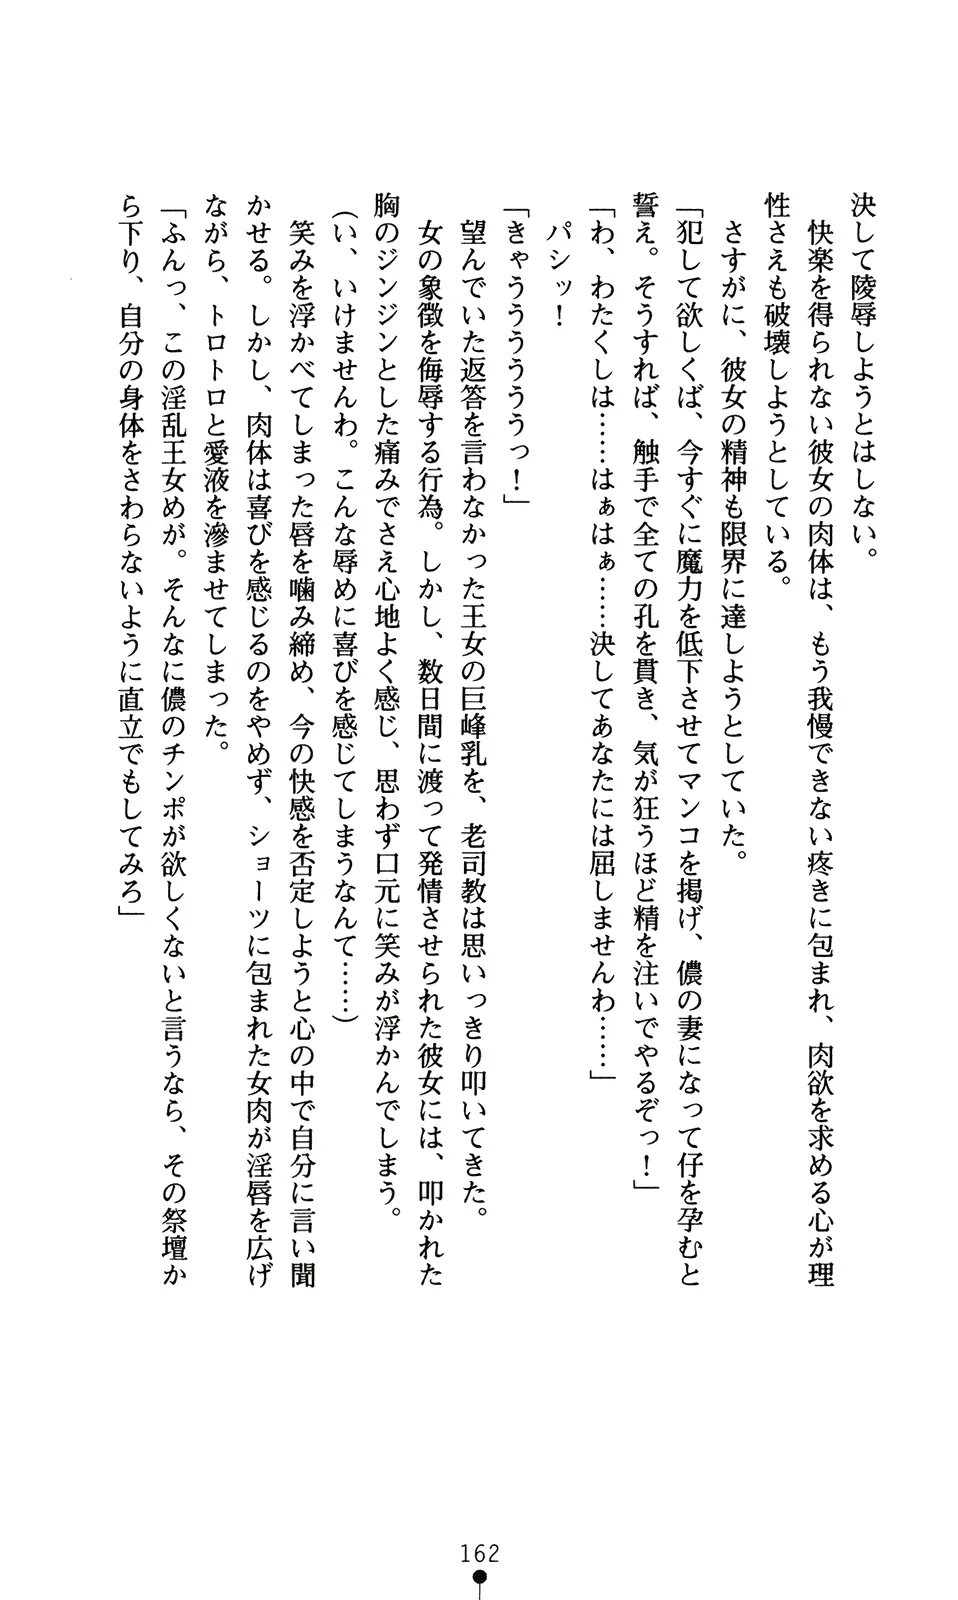 決して陵辱しようとはしない。
快楽を得られない彼女の肉体は、もう我慢できない疼きに包まれ、肉欲を求める心が理
性さえも破壊しようとしている。
さすがに、彼女の精神も限界に達しようとしていた。
「犯して欲しくば、今すぐに魔力を低下させてマンコを掲げ、儂の妻になって仔を孕むと
誓え。そうすれば、触手で全ての孔を貫き、気が狂うほど精を注いでやるぞっ！」
「わ、わたくしは……はぁはぁ……決してあなたには屈しませんわ……」
パシッ！
「きゃうううううっ！」
望んでいた返答を言わなかった王女の巨峰乳を、老司教は思いっきり叩いてきた。
女の象徴を侮辱する行為。しかし、数日間に渡って発情させられた彼女には、叩かれた
胸のジンジンとした痛みでさえ心地よく感じ、思わず口元に笑みが浮かんでしまう。
（い、いけませんわ。こんな辱めに喜びを感じてしまうなんて……）
笑みを浮かべてしまった唇を噛み締め、今の快感を否定しようと心の中で自分に言い聞
かせる。しかし、肉体は喜びを感じるのをやめず、ショーツに包まれた女肉が淫唇を広げ
ながら、トロトロと愛液を滲ませてしまった。
「ふんっ、この淫乱王女めが。そんなに儂のチンポが欲しくないと言うなら、その祭壇か
ら下り、自分の身体をさわらないように直立でもしてみろ」
162